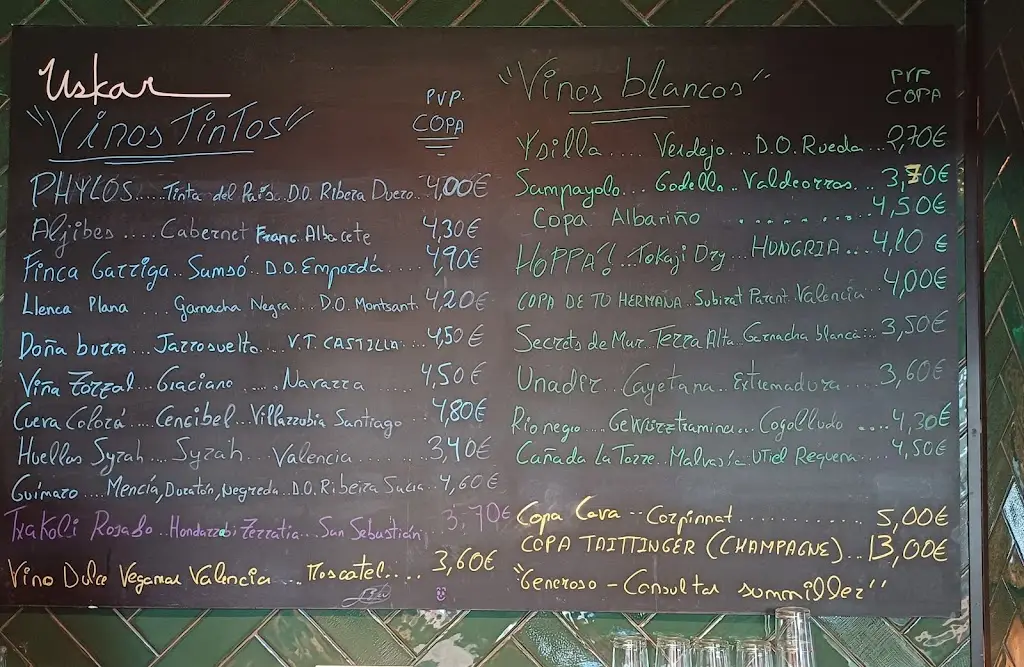 Uskar
"Vinos Tintos"
PVP.
COPA
PHYLOS..... Tinta del País. D.O. Ribera Duero.. 4,00€
Aljibes .... Cabernet Franc. Albacete 4,30€
Finca Garriga.. Samsó.. D.O. Empordá.... 4,90€
Llenca Plana .... Garnacha Negra... D.O. Montsant. 4,20€
Doña burra... Jarrosuelto.... V.T. CASTILLA.. 4,50€
Viña Zorzal... Graciano ..... Navarra 4,50€
Cueva Colorá... Cencibel.. Villarrubia Santiago 4,80€
Huellas Syrah.... Syrah. Valencia........ 3,40€
Guimaro.... Mencía, Duratón, Negreda.. D.O. Ribeira Sacra.. 4,60€
Txakoli Rosado.. Hondarrabi Zerratia... San Sebastián 3,70€
Vino Dulce Vegamar Valencia ... Moscatel.... 3,60€
"Vinos blancos"
PVP
COPA
Ysilla.... Verdejo... D.O. Rueda... 2,70€
Sampayolo... Godello.. Valdeorras... 3,70€
Copa Albariño ........... 4,50€
HOPPÁ!.. Tokaji Dry... HUNGRIA... 4,10€
COPA DE TU HERMANA.. Subirat Parent. Valencia 4,00€
Secrets de Mar. Terra Alta. Garnacha blanca... 3,50€
Unader.. Cayetana. Extremadura.... 3,60€
Rionegro... Gewürztraminer.. Cogolludo .... 4,30€
Cañada La Torre. Malvasía. Utiel Requena.... 4,50€
Copa Cava -- Corpinnat........... 5,00€
COPA TAITTINGER (CHAMPAGNE)... 13,00€
"Generoso - Consultar summiller"